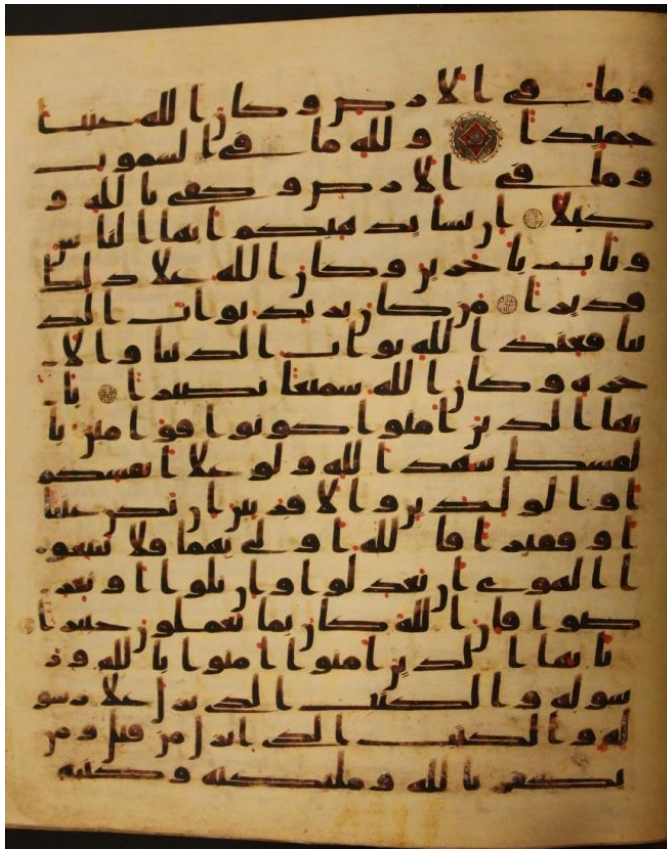 وما في الارض وكان الله غنيا
حميدا ولله ما في السموت
وما في الارض وكفى بالله و
كيلا ان يشا يذهبكم ايها الناس
ويات باخرين وكان الله علا ذلك
قديرا من كان يريد ثواب الد
نيا فعند الله ثواب الدنيا والا
خره وكان الله سميعا بصيرا يا
يها الذين امنوا كونوا قوامين با
لقسط شهدا لله ولو علا انفسكم
او الولدين والاقربين ان يكن غنيا
او فقيرا فالله اولى بهما فلا تتبعو
ا الهوى ان تعدلوا وان تلوا او تعر
ضوا فان الله كان بما تعملون خبيرا
يايها الذين امنوا امنوا بالله ور
سوله والكتب الذي نزل علا رسو
له والكتب الذي انزل من قبل ومن
يكفر بالله ومليكته وكتبه